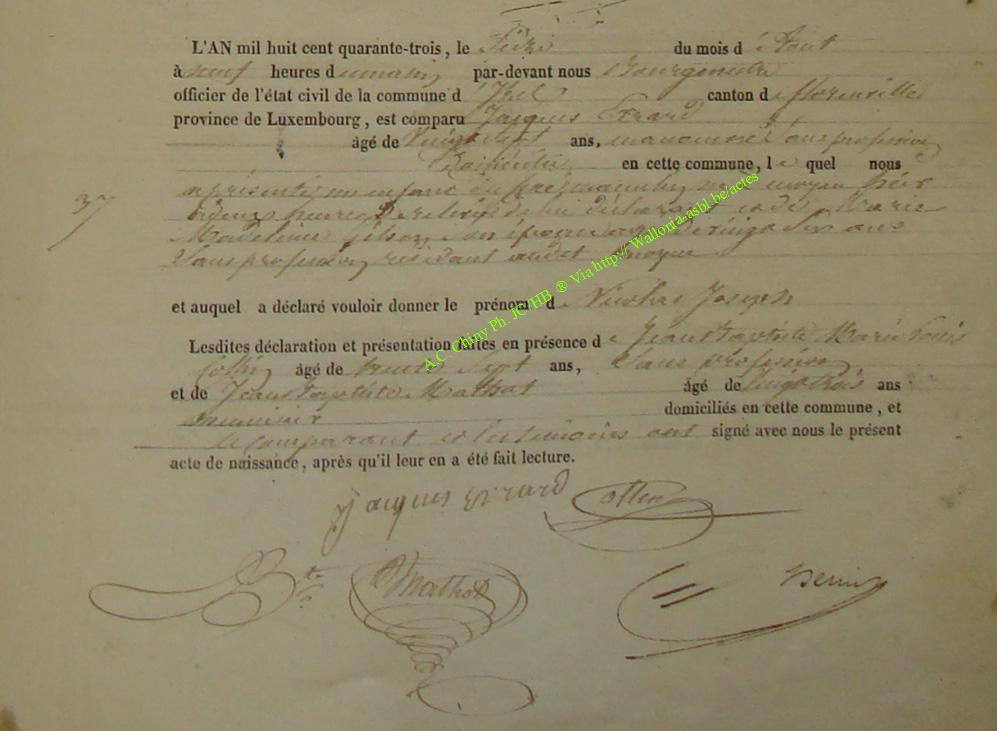 L'AN mil huit cent quarante-trois, le Seize du mois d'Aout
à neuf heures du matin par-devant nous Bourgmestre
officier de l'état civil de la commune d'Izel canton de florenville
province de Luxembourg, est comparu Jacques Evrard
âgé de Vingt Sept ans, sans profession
Domicilié en cette commune, le quel nous
a présenté un enfant du Sexe masculin, né à moyen hier
37
à deux heures de relevée de lui déclarant et de Marie
Madeleine Gilson, Son épouse agée de vingt Six ans
Sans profession, résidant audit moyen
et auquel a déclaré vouloir donner le prénom de Nicolas Joseph
Lesdites déclaration et présentation faites en présence de Jean Baptiste Marie Louis
Collin âgé de trente Sept ans, Sans profession
et de Jean Baptiste Mathot âgé de Vingt trois ans
domiciliés en cette commune, et
le Comparant et les temoins ont signé avec nous le présent
acte de naissance, après qu'il leur en a été fait lecture.
Jacques Evrard Collin
Bte Mathot
A.C. Chiny Ph. JC/HB ® Via http://Wallonia-asbl.be/actes